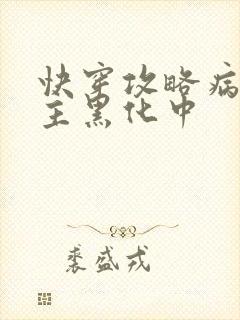 快穿攻略病
主黑化中
裴盛戎